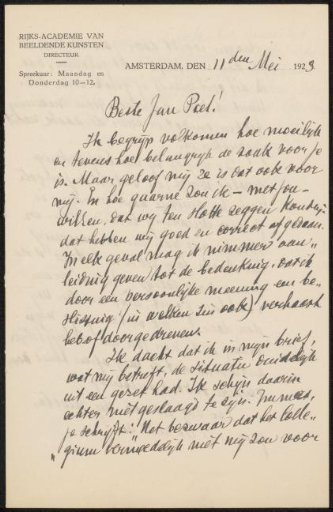 RIJKS-ACADEMIE VAN
BEELDENDE KUNSTEN
DIRECTEUR
Spreekuur: Maandag en
Donderdag 10—12.
AMSTERDAM, DEN 11den Mei 1923
Beste Jan Piet!
Ik begrijp volkomen hoe moeilijk
en tevens hoe belangrijk de zaak voor je
is. Maar geloof mij ze is dat ook voor
mij. En hoe gaarne zou ik — met jou —
willen, dat wij ten slotte zeggen konden,
dat hebben wij goed en correct afgedaan.
In elk geval mag ik nimmer aan-
leiding geven tot de bedenking, dat ik
door een persoonlijke meening een be-
slissing (in welken zin ook) verhaast
heb of doorgedreven.
Ik dacht dat ik in mijn brief,
wat mij betreft, de situatie duidelijk
uit een gezet had. Ik schijn daarin
echter niet geslaagd te zijn. Immers,
je schrijft: "Het bezwaar dat het Colle-
"gium vermoedelijk niet mij zou voor